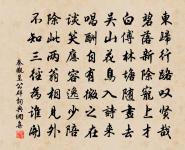 東歸行路嘆賢哉
碧落新除寵上才
白傅林塘傳畫去
吳山花鳥入詩來
唱酬自有微之在
談笑應容逸少陪
除此兩翁相見外
不知三徑為誰開
秦觀呈公辟詞典網書